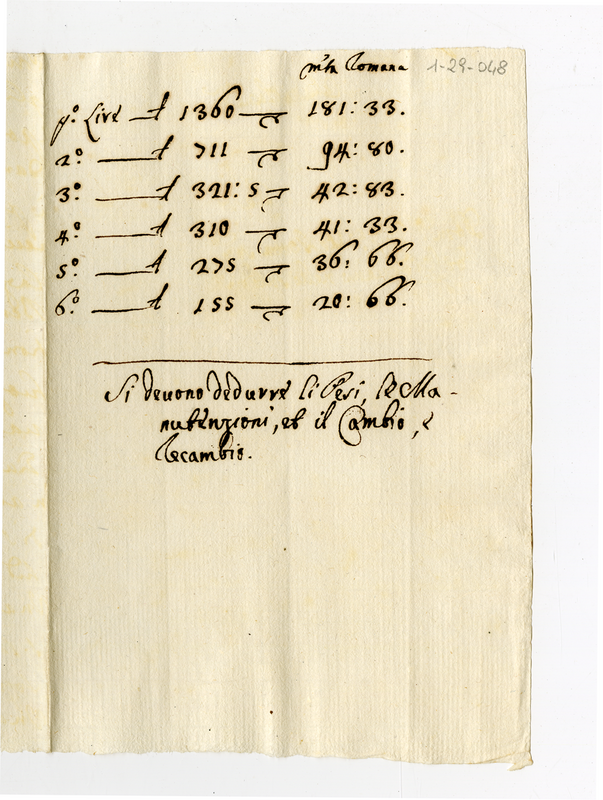 mta Romana 1-29-048
po. Lire — £ 1360 — 181: 33.
2o. — £ 711 — 94: 80.
3o. — £ 321: 5 — 42: 83.
4o. — £ 310 — 41: 33.
5o. — £ 275 — 36: 66.
6o. — £ 155 — 20: 66.
Si deuono dedurre li Pesi, le Ma-
nutenzioni, et il Cambio, e
Recambio.